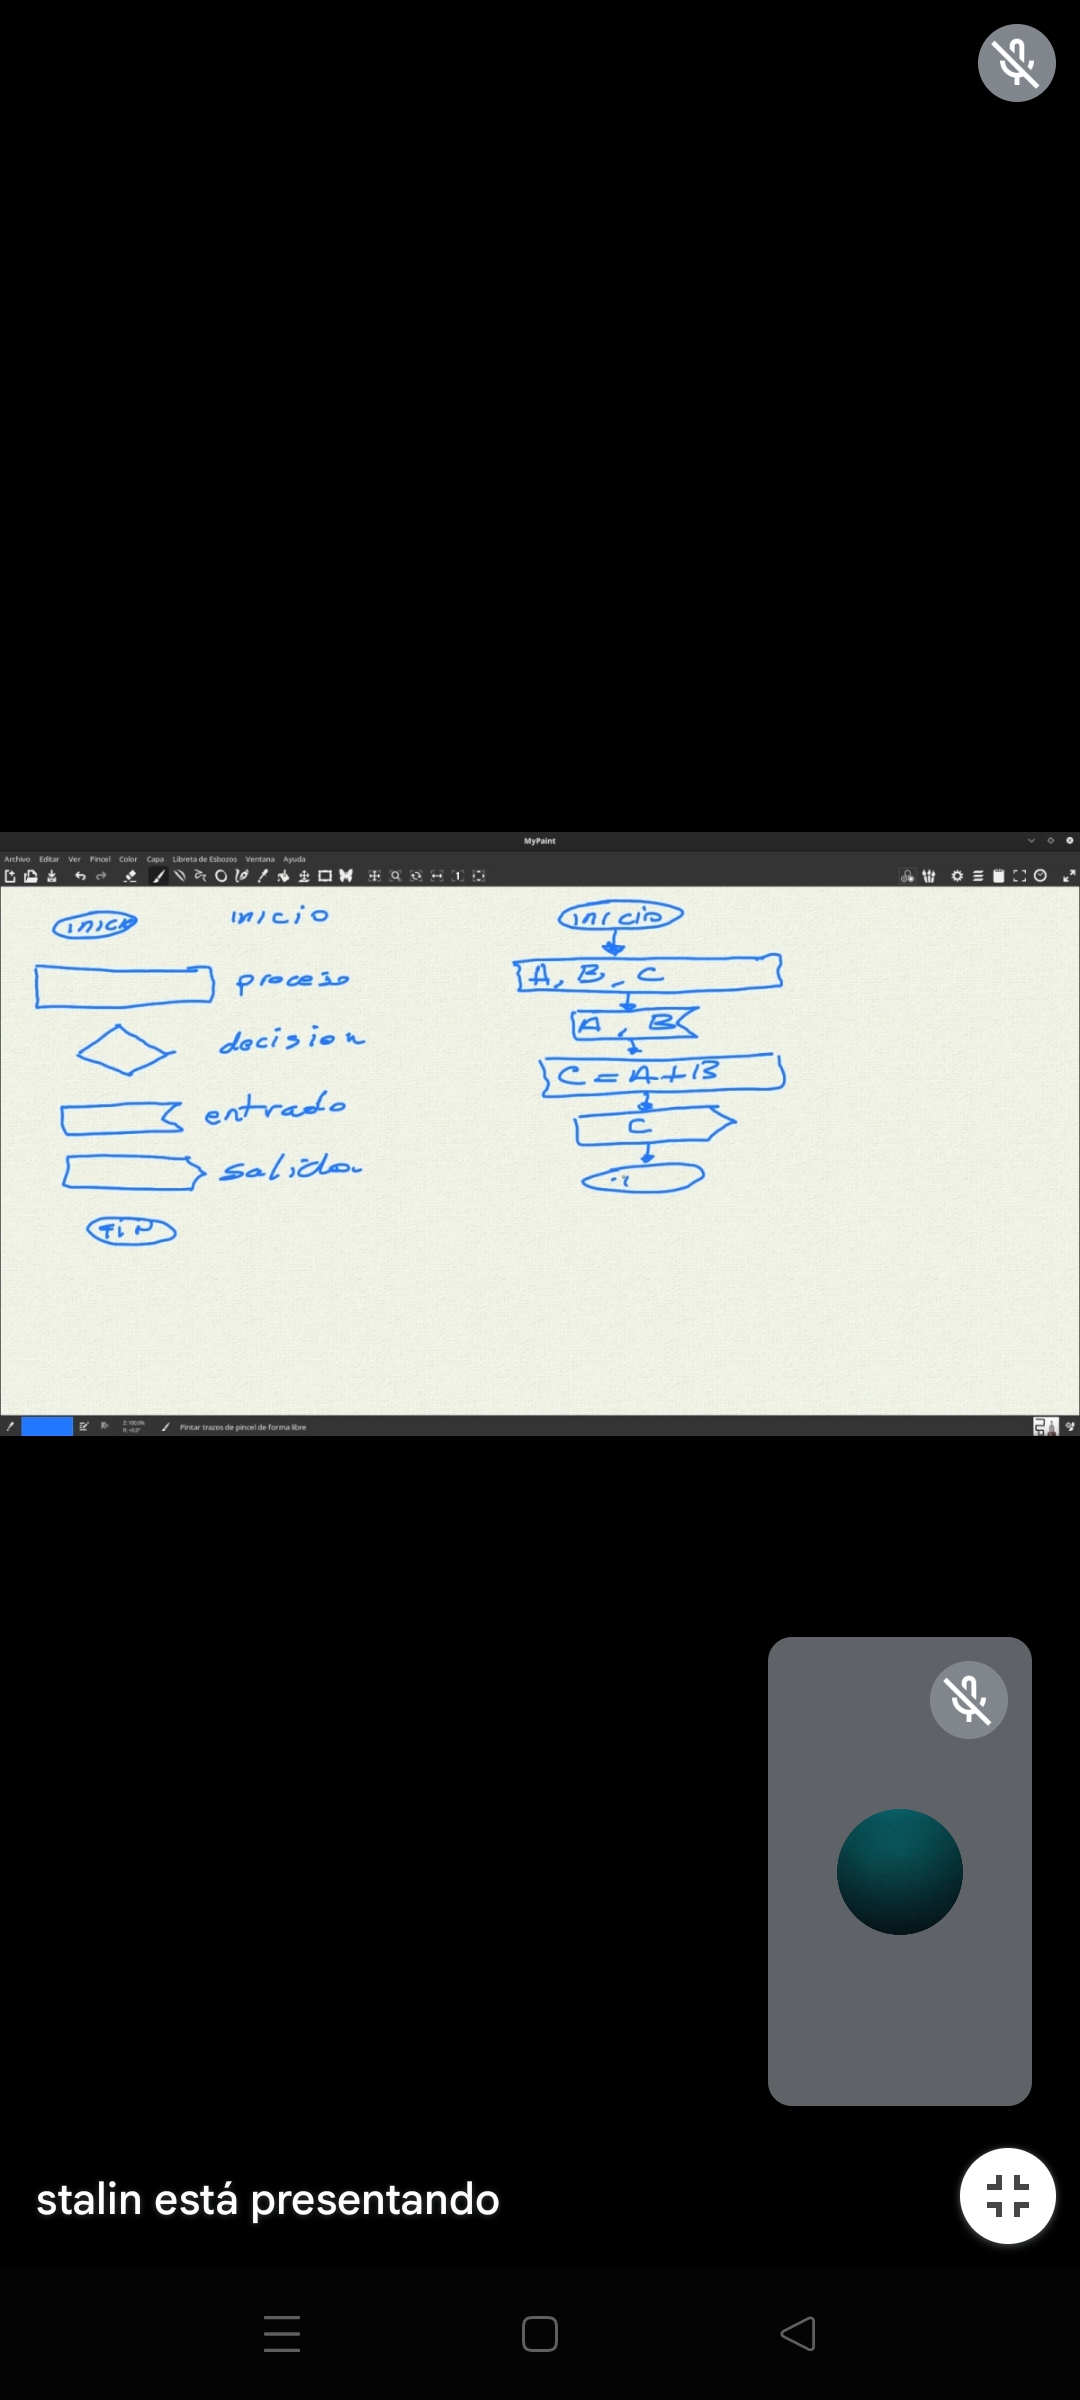 MyPaint
Archivo Editar Ver Pincel Color Capa Libreta de Esbozos Ventana Ayuda
inicio
inicio
proceso
decision
entrada
salida
FiN
inicio
A, B, C
A, B
C = A+B
C
Pintar trazos de pincel de forma libre
stalin está presentando